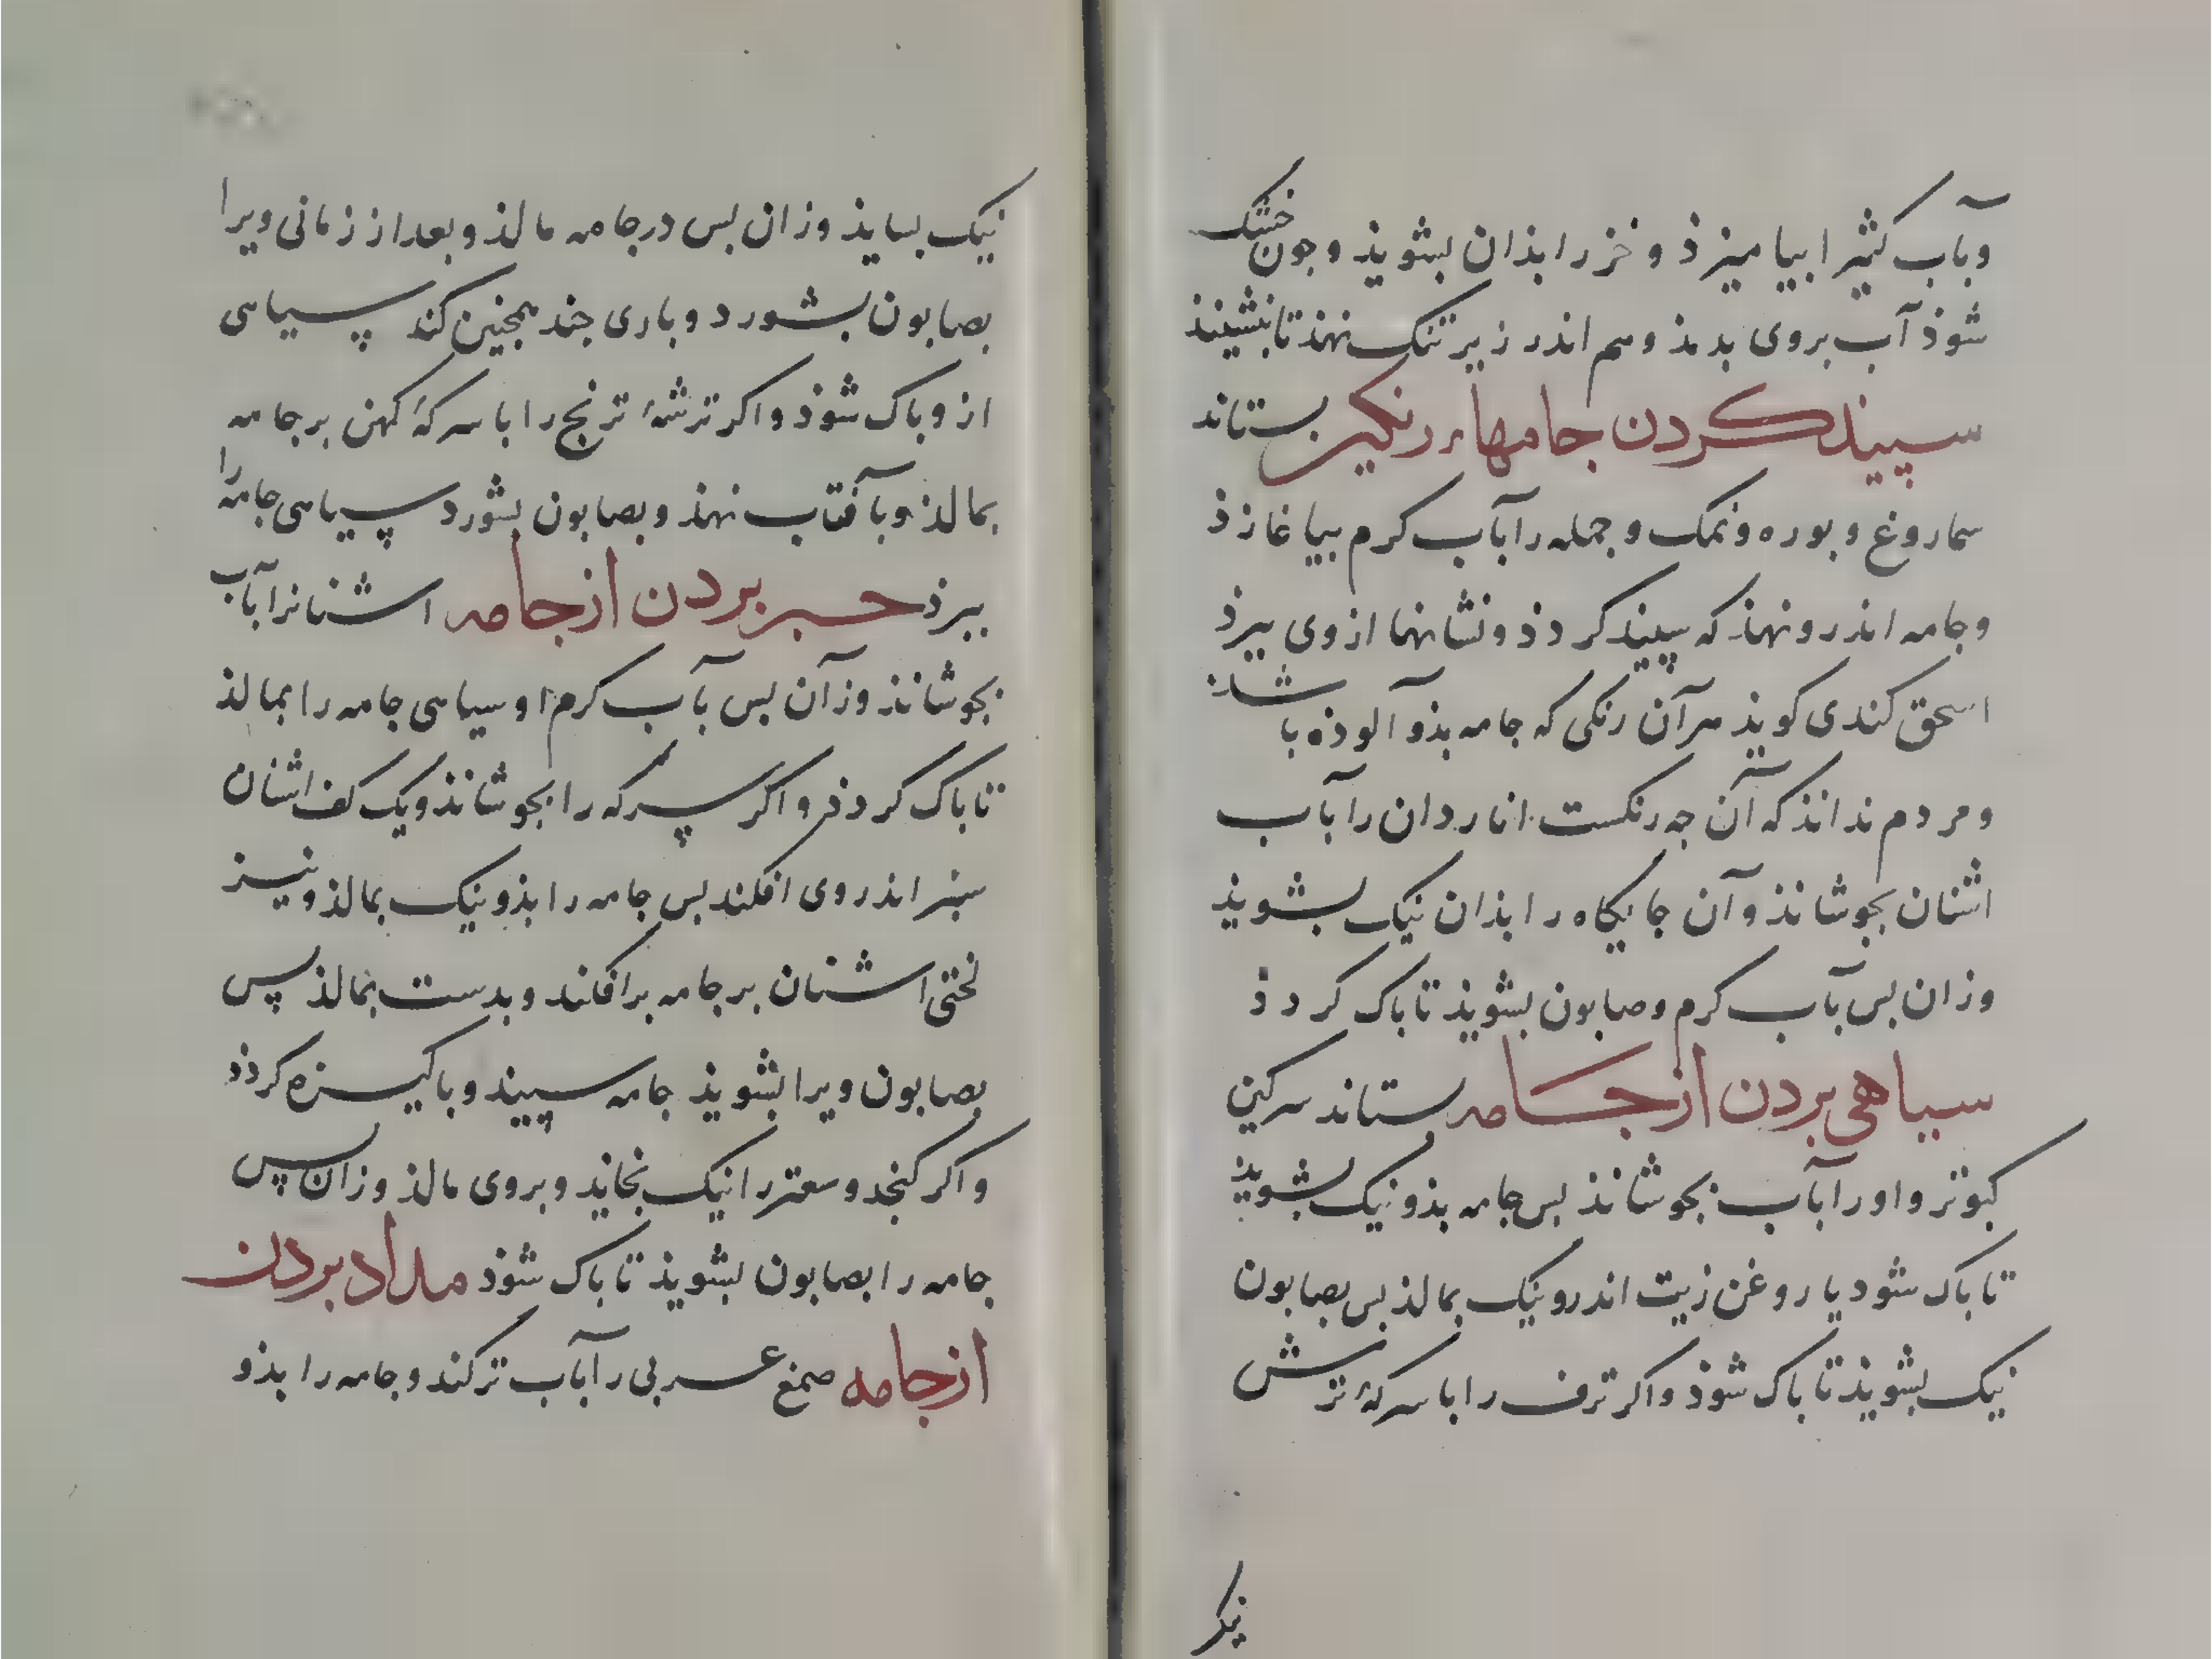 وبآب کثیرا بیامیزذ و خز را بذان بشویذ و جون خشک
شوذ آب بروی بدمذ وهم اندر زیر تنک نهند تا بنشیند
سپیذ کردن جامهاء رنکین بستاند
سماروغ و بوره و نمک و جمله را بآب کرم بیاغازذ
و جامه اندرو نهذ که سپیذ کردذ و نشانها از وی ببرذ
اسحق کندی کویذ هر آن رنکی که جامه بذو آلوذه باشد
و مردم نداند که آن جه رنکست اناردان را بآب
اشنان بجوشانذ و آن جایکاه را بذان نیک بشویذ
وزان بس بآب کرم و صابون بشویذ تا باک کردذ
سیاهی بردن از جامه بستاند سرکین
کبوتر و او را بآب بجوشانذ بس جامه بذو نیک بشویذ
تا باک شود یا روغن زیت اندرو نیک بمالذ بس بصابون
نیک بشویذ تا باک شوذ و اکر ترف را با سرکهٔ ترش
نیک
نیک بسایذ وزان بس در جامه مالذ و بعد از زمانی ویرا
بصابون بشورد و باری جند همجنین کند سیاهی
ازو باک شوذ و اکر ترشهٔ ترنج را با سرکهٔ کهن بر جامه
بمالذ و بآفتاب نهذ و بصابون بشورد سیاهی جامه را
ببرذ حبر بردن از جامه اشنانرا بآب
بجوشانذ وز آن بس بآب کرم او سیاهی جامه را بمالذ
تا باک کردذ و اکر سرکه را بجوشانذ و یک کف اشنان
سبز اندر وی افکند بس جامه را بذو نیک بمالذ و نیز
لختی اشنان بر جامه برافکند و بدست بمالذ پس
بصابون ویرا بشویذ جامه سپیذ و باکیزه کردذ
و اکر کنجد و سعتر را نیک بخاید و بروی مالذ وزان پس
جامه را بصابون بشویذ تا باک شوذ مداد بردن
از جامه صمغ عربی را بآب تر کند و جامه را بذو